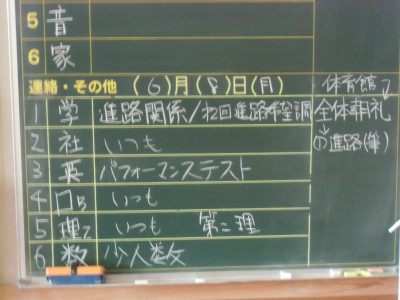 5 音
6 家
連絡・その他 (6)月(8)日(月)
体育館
1 学 進路関係/ 回進路希望調
全体朝礼
2 社 いつも
進路
3 英 パフォーマンステスト
4 いつも
5 理 いつも 第二理
6 数 少人数